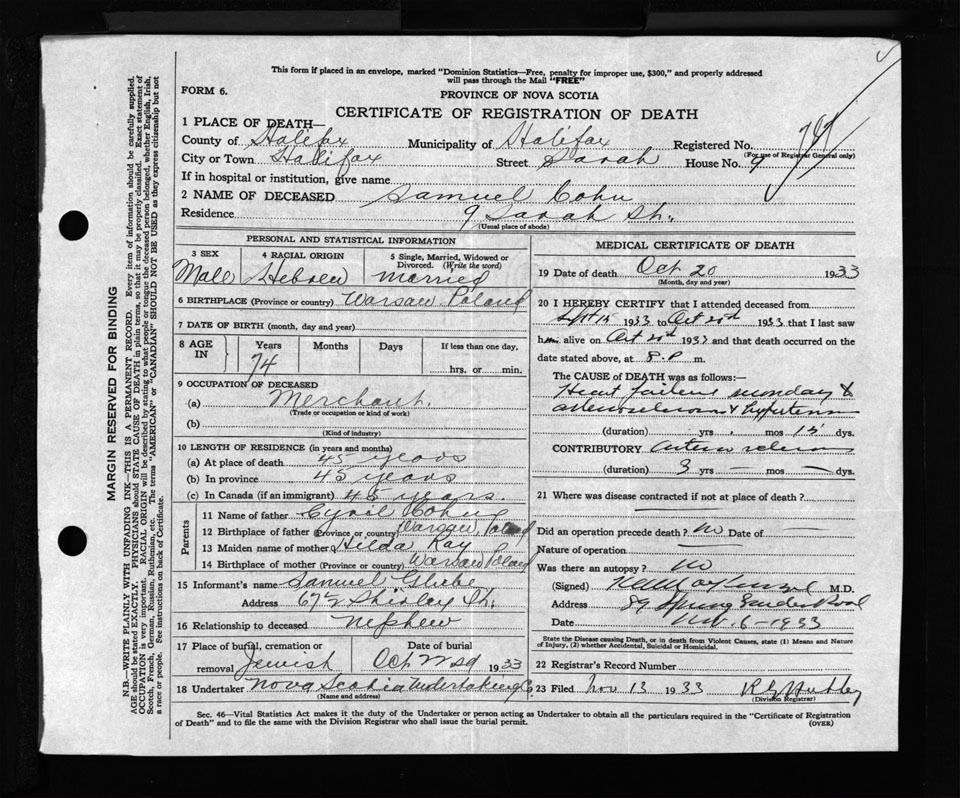 This form if placed in an envelope, marked "Dominion Statistics—Free, penalty for improper use, $300," and properly addressed
will pass through the Mail "FREE"
FORM 6.
PROVINCE OF NOVA SCOTIA
CERTIFICATE OF REGISTRATION OF DEATH
1 PLACE OF DEATH—
County of Halifax Municipality of Halifax Registered No.
(For use of Registrar General only)
City or Town Halifax Street Sarah House No. 9
If in hospital or institution, give name
2 NAME OF DECEASED Samuel Cohn
Residence 9 Sarah St.
(Usual place of abode)
PERSONAL AND STATISTICAL INFORMATION
3 SEX 4 RACIAL ORIGIN 5 Single, Married, Widowed or
Divorced. (Write the word)
Male Hebrew Married
6 BIRTHPLACE (Province or country) Warsaw Poland
7 DATE OF BIRTH (month, day and year)
8 AGE IN Years Months Days If less than one day,
74 hrs. or min.
9 OCCUPATION OF DECEASED
(a) Merchant.
(Trade or occupation or kind of work)
(b)
(Kind of industry)
10 LENGTH OF RESIDENCE (in years and months)
(a) At place of death 45 years
(b) In province 45 years
(c) In Canada (if an immigrant) 45 years
Parents
11 Name of father Cyril Cohn
12 Birthplace of father (Province or country) Warsaw Poland
13 Maiden name of mother Hilda Ray
14 Birthplace of mother (Province or country) Warsaw Poland
15 Informant's name Samuel Glube
Address 67½ Shirley St.
16 Relationship to deceased nephew
17 Place of burial, cremation or Date of burial
removal Jewish Oct 22nd 1933
18 Undertaker Nova Scotia Undertaking Co
(Name and address)
MEDICAL CERTIFICATE OF DEATH
19 Date of death Oct 20 1933
(Month, day and year)
20 I HEREBY CERTIFY that I attended deceased from
Sept 15 1933 to Oct 20th 1933 that I last saw
him alive on Oct 20th 1933 and that death occurred on the
date stated above, at 8.P m.
The CAUSE of DEATH was as follows:
Heart failure secondary to
arteriosclerosis & hypertension
(duration) yrs. mos 15 dys.
CONTRIBUTORY arteriosclerosis
(duration) 3 yrs mos dys.
21 Where was disease contracted if not at place of death?
Did an operation precede death? no Date of
Nature of operation
Was there an autopsy? no
(Signed) M.D.
Address 89 Spring Garden Road
Date Nov. 6-1933
State the Disease causing Death, or in death from Violent Causes, state (1) Means and Nature
of Injury, (2) whether Accidental, Suicidal or Homicidal.
22 Registrar's Record Number
23 Filed Nov 13 1933
(Division Registrar)
Sec. 46—Vital Statistics Act makes it the duty of the Undertaker or person acting as Undertaker to obtain all the particulars required in the "Certificate of Registration
of Death" and to file the same with the Division Registrar who shall issue the burial permit.
(OVER)
MARGIN RESERVED FOR BINDING
N.B.—WRITE PLAINLY WITH UNFADING INK—THIS IS A PERMANENT RECORD. Every item of information should be carefully supplied.
AGE should be stated EXACTLY. PHYSICIANS should STATE CAUSE OF DEATH in plain terms, so that it may be properly classified. Exact statement of
OCCUPATION is very important. RACIAL ORIGIN will be described by stating to what people or tongue the deceased person belonged, whether English, Irish,
Scotch, French, German, Russian, Ruthenian, etc. The terms "AMERICAN" or "CANADIAN" SHOULD NOT BE USED as they express citizenship but not
a race or people. See instructions on back of Certificate.